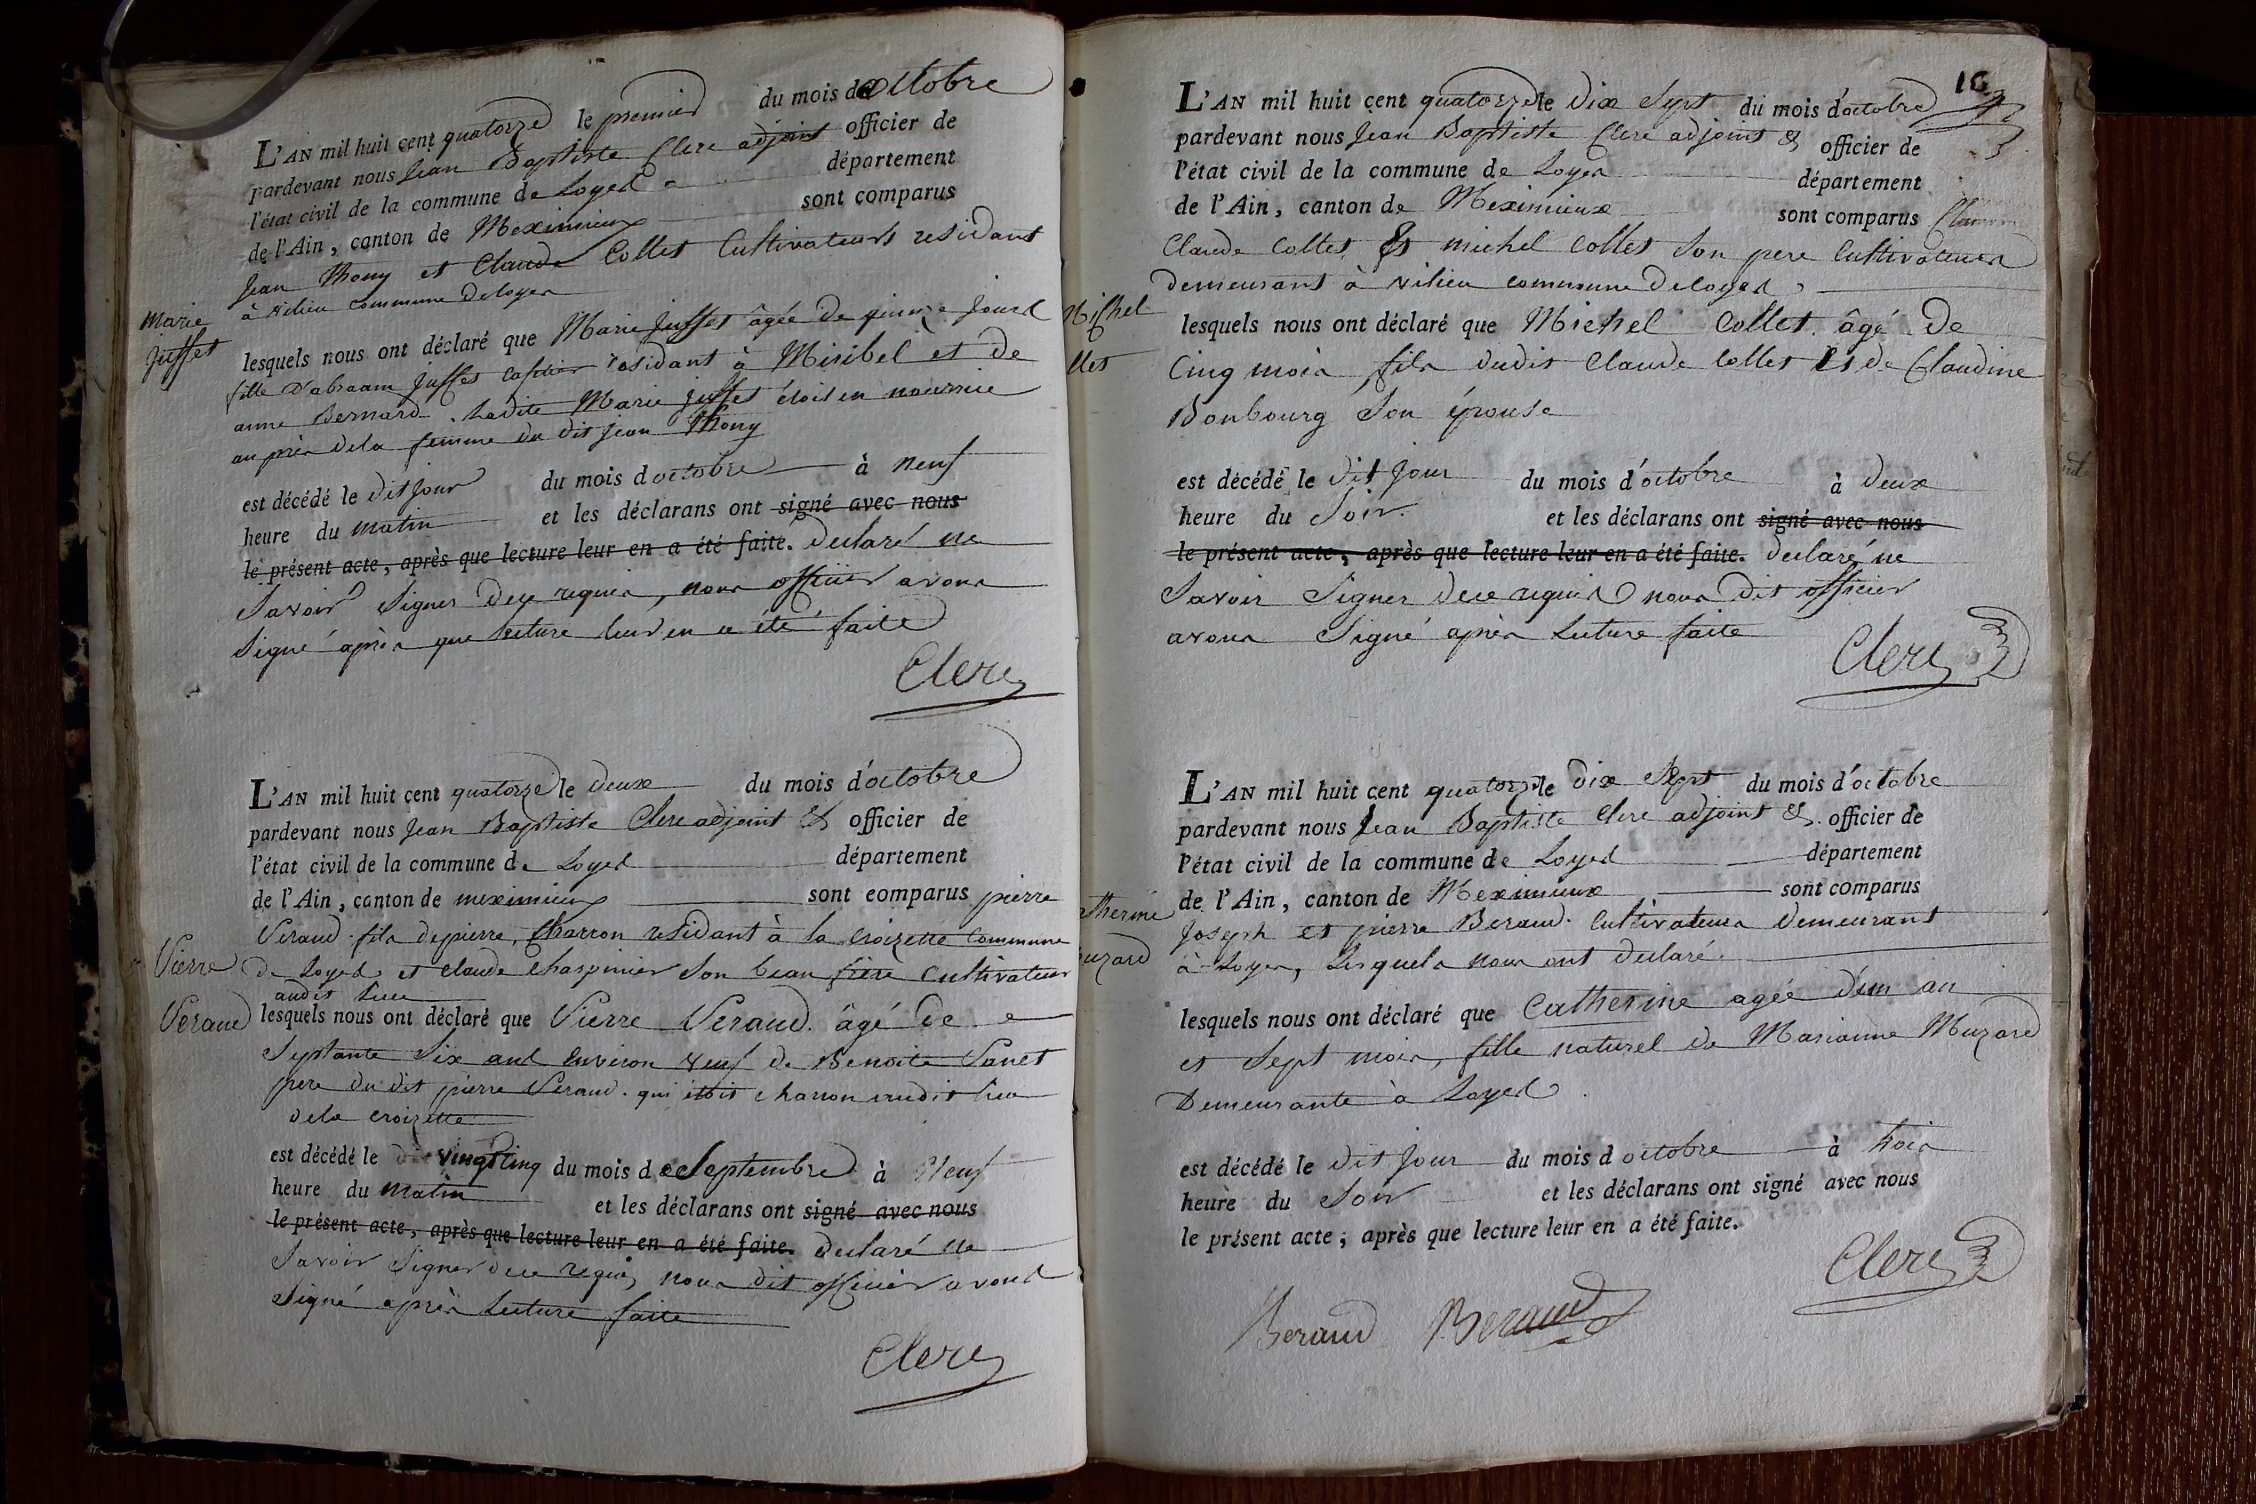 L'AN mil huit cent quatorze le premier du mois de octobre
pardevant nous Jean Baptiste Clerc adjoint officier de
l'état civil de la commune de Loyes département
de l'Ain, canton de Meximieux sont comparus
Jean Thony et Claude Collet Cultivateurs residant
à vilieu commune de loyes
Marie
Juffet
lesquels nous ont déclaré que Marie Juffet âgée de quinze jours
fille d'abraam Juffet residant à Miribel et de
anne Bernard. Ladite Marie juffet étoit en nourrice
au près de la femme du dit Jean Thony
est décédé le dit jour du mois d octobre à neuf
heure du matin et les déclarans ont signé avec nous
le présent acte, après que lecture leur en a été faite. declaré ne
Savoir Signer de ce requis, nous officier avons
Signé après que lecture leur en a été faite
Clerc
L'AN mil huit cent quatorze le deux du mois d'octobre
pardevant nous Jean Baptiste Clerc adjoint & officier de
l'état civil de la commune de Loyes département
de l'Ain, canton de meximieux sont comparus pierre
Veraud fils de pierre, Charron residant à la Croizette Commune
de Loyes et claude Charpinier Son beau frère cultivateur
audit lieu
Pierre
Veraud
lesquels nous ont déclaré que Pierre Veraud. âgé de
Septante Six ans environ veuf de Benoite Panet
pere du dit pierre Veraud. qui étoit charron audit lieu
de la croizette
est décédé le vingt cinq du mois de Septembre à Neuf
heure du matin et les déclarans ont signé avec nous
le présent acte, après que lecture leur en a été faite. declaré ne
Savoir Signer de ce requis, nous dit officier avons
Signé après lecture faite
Clerc
16
L'AN mil huit cent quatorze le dix Sept du mois d'octobre
pardevant nous Jean Baptiste Clerc adjoint & officier de
l'état civil de la commune de Loyes département
de l'Ain, canton de Meximieux sont comparus
Claude Collet Et michel Collet Son pere Cultivateurs
demeurant à vilieu commune de loyes
Michel
llet
lesquels nous ont déclaré que Michel Collet. âgé de
Cinq mois, fils dudit Claude Collet Et de Claudine
Bonbourg Son épouse
est décédé le dit jour du mois d'octobre à deux
heure du Soir. et les déclarans ont signé avec nous
le présent acte, après que lecture leur en a été faite. declaré ne
Savoir Signer de ce requis nous Dit officier
avons Signé après lecture faite
Clerc
L'AN mil huit cent quatorze le dix Sept du mois d'octobre
pardevant nous Jean Baptiste Clerc adjoint & officier de
l'état civil de la commune de Loyes département
de l'Ain, canton de Meximieux sont comparus
Joseph et pierre Beraud. Cultivateurs demeurant
à Loyes, Lesquels nous ont declaré
therine
uzard
lesquels nous ont déclaré que Catherine agée d'un an
et Sept mois, fille naturel de Marianne Muzard
Demeurante à Loyes
est décédé le dit jour du mois d octobre à trois
heure du Soir et les déclarans ont signé avec nous
le présent acte, après que lecture leur en a été faite.
Clerc
Beraud Beraud